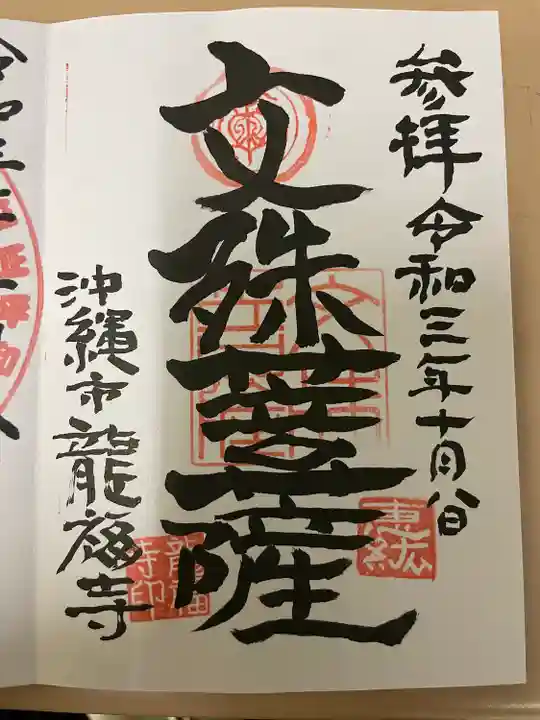 参拝令和三年十月八日
文殊菩薩
沖縄市龍福寺
龍福
寺印
令和三年